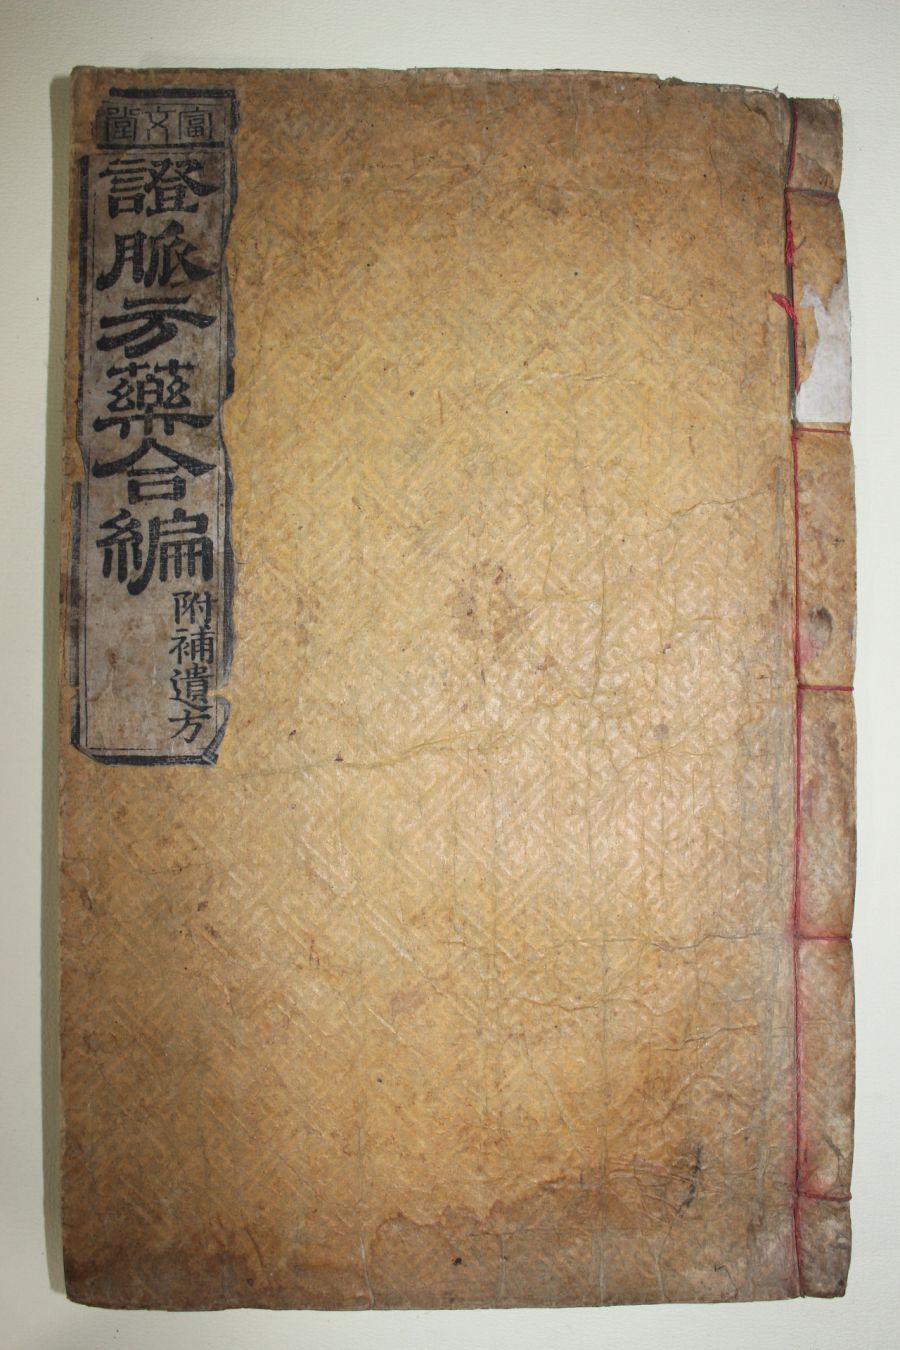 富文堂
證脈方藥合編
附補遺方